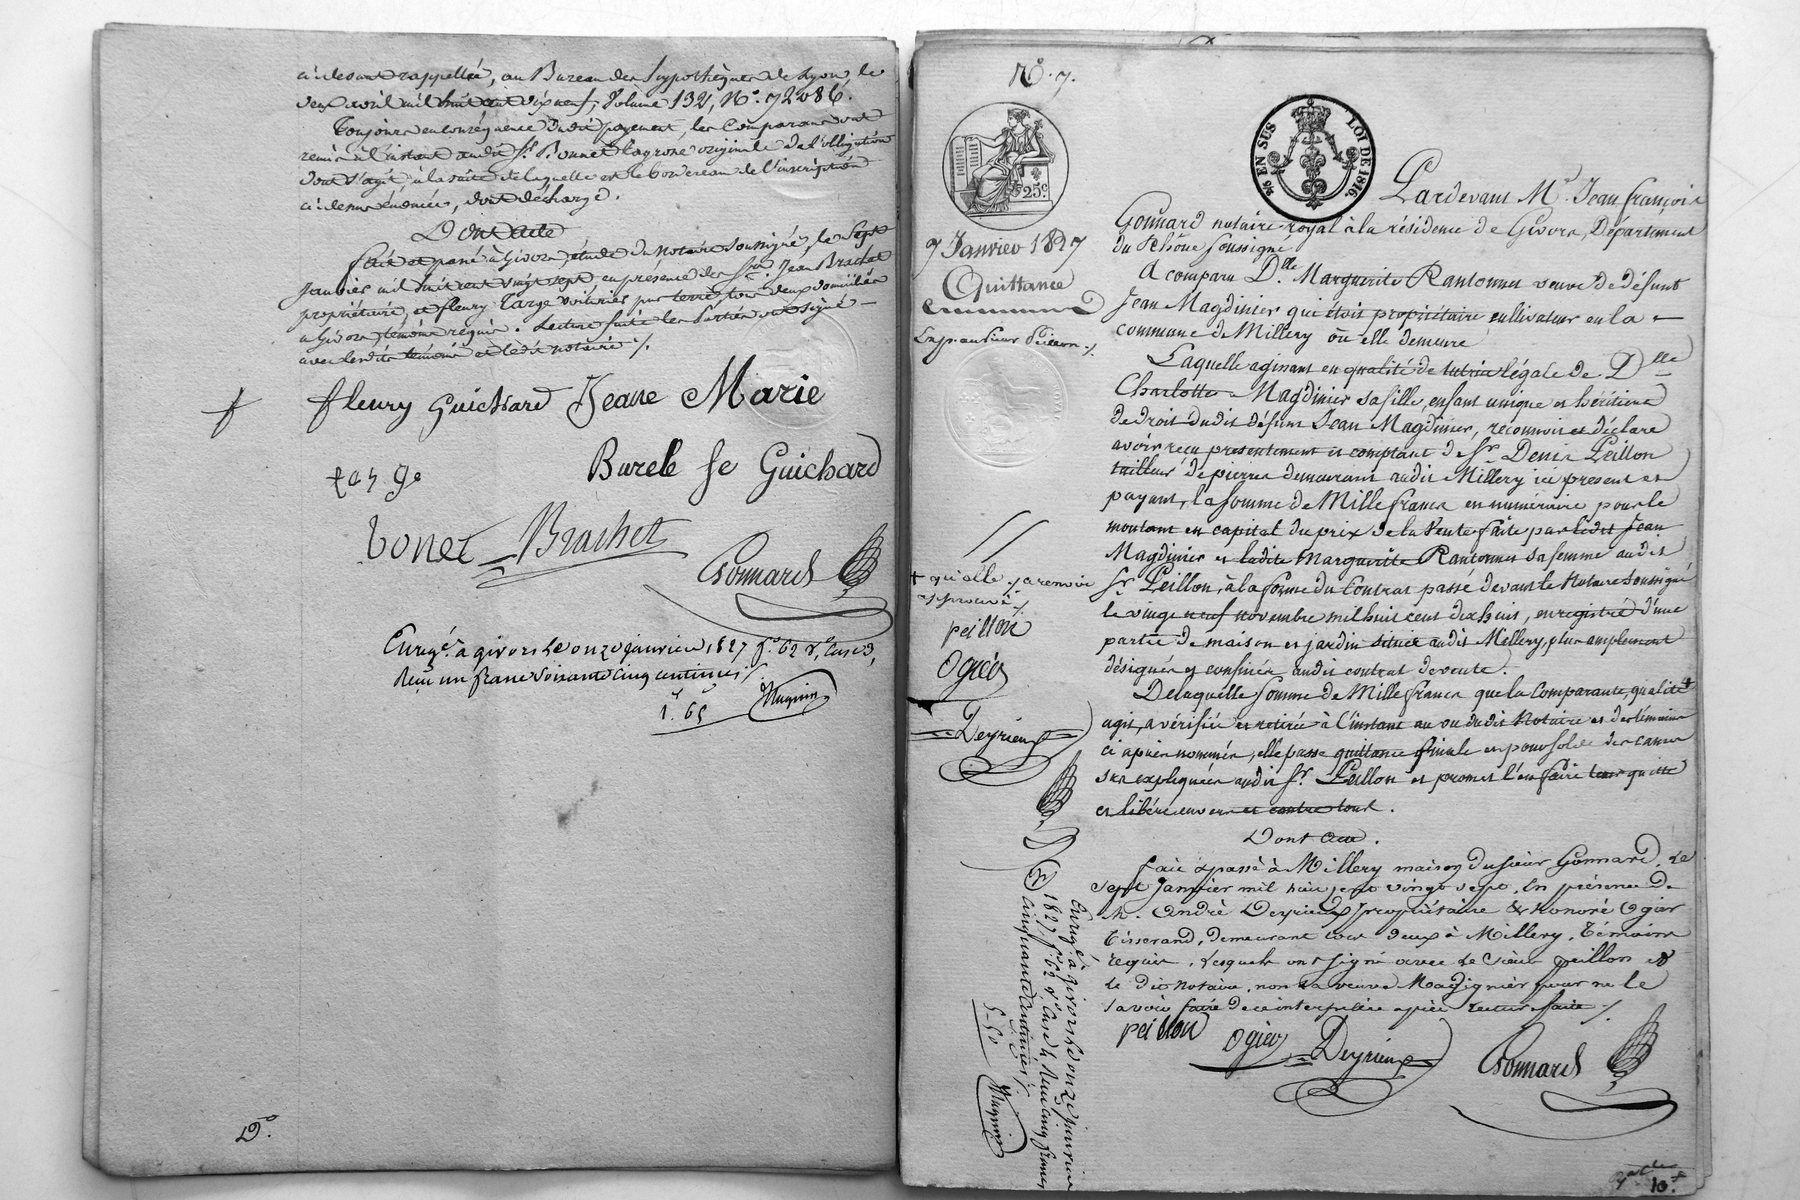 ci-dessus rappellée, au Bureau des hypothèques de Lyon, le
deux avril mil huit cent dix neuf, Volume 132, N°. 72086.
Toujours en conséquence dudit payement, les Comparans ont
remis à l'instant audit Sr. Bonnet la grosse originale de l'obligation
dont s'agit à la suite de laquelle est le bordereau de l'inscription
ci-dessus énoncée, dont décharge.
Dont acte
fait et passé à Givors, étude du notaire soussigné, le sept
Janvier mil huit cent vingt sept en présence des Srs. Jean Brachet
propriétaire, et fleury Large voiturier par terre, tous deux domiciliés
à Givors, témoins requis. Lecture faite les Parties ont signé
avec lesdits témoins et ledit notaire ./.
fleury Guichard Jeane Marie
Burele fe Guichard
Bonet Brachet
Gonnard
Enregé. à givors le onze janvier 1827 f°. 62 r°. Case 3,
Reçu un franc soixante cinq centimes ./.
1f. 65c
Magnin
D°.
N°. 7.
25c.
EN SUS
LOI DE 1816.
7 Janvier 1827
Quittance
Exp. au sieur Peillon ./.
Pardevant Me. Jean françois
Gonnard notaire royal à la résidence de Givors, Département
du Rhône soussigné
A comparu Dlle. Marguerite Rantonnet veuve de défunt
Jean Magdinier qui étoit propriétaire cultivateur en la
commune de Millery où elle demeure
Laquelle agissant en qualité de tutrice légale de Dlle
Charlotte Magdinier sa fille, enfant unique et héritière
de droit dudit défunt Jean Magdinier, reconnoit et déclare
avoir reçu presentement et comptant de Sr. Denis Peillon
tailleur de pierres demeurant audit Millery ici present et
payant, la somme de Mille francs en numéraire pour le
montant en capital du prix de la Vente faite par ledit Jean
Magdinier et ladite Marguerite Rantonnet sa femme audit
Sr. Peillon, à la forme du Contrat passé devant le Notaire soussigné
le vingt neuf novembre mil huit cent dix huit, enregistré d'une
partie de maison et jardin situés audit Millery, plus amplement
désignés et confinés audit contrat de vente.
De laquelle somme de Mille francs que la Comparante, qualité +
agit, a vérifiée et retirée à l'instant au vu dudit Notaire et des témoins
ci après nommés, elle passe quittance finale et pour solde des causes
sus expliquées audit Sr. Peillon et promet l'en faire tenir quitte
et libéré envers et contre tous.
Dont Acte.
fait & passé à Millery maison du sieur Gonnard, le
sept Janvier mil huit cent vingt sept, En présence de
M. André Deyrieux propriétaire & honoré Ogier
Tisserand, demeurant tous deux à Millery, témoins
requis, lesquels ont signé avec le sieur peillon &
le dit notaire, non la veuve Magdinier pour ne le
savoir faire de ce interpellée après lecture faite ./.
peillon Ogier Deyrieux Gonnard
+ qu'elle ./. a renvoi
approuvé ./.
peillon
Ogier
Deyrieux
Enregé. à givors le onze janvier
1827, f°. 62 r°. Case 4 Reçu cinq francs
cinquante centimes ./.
5-50
Magnin